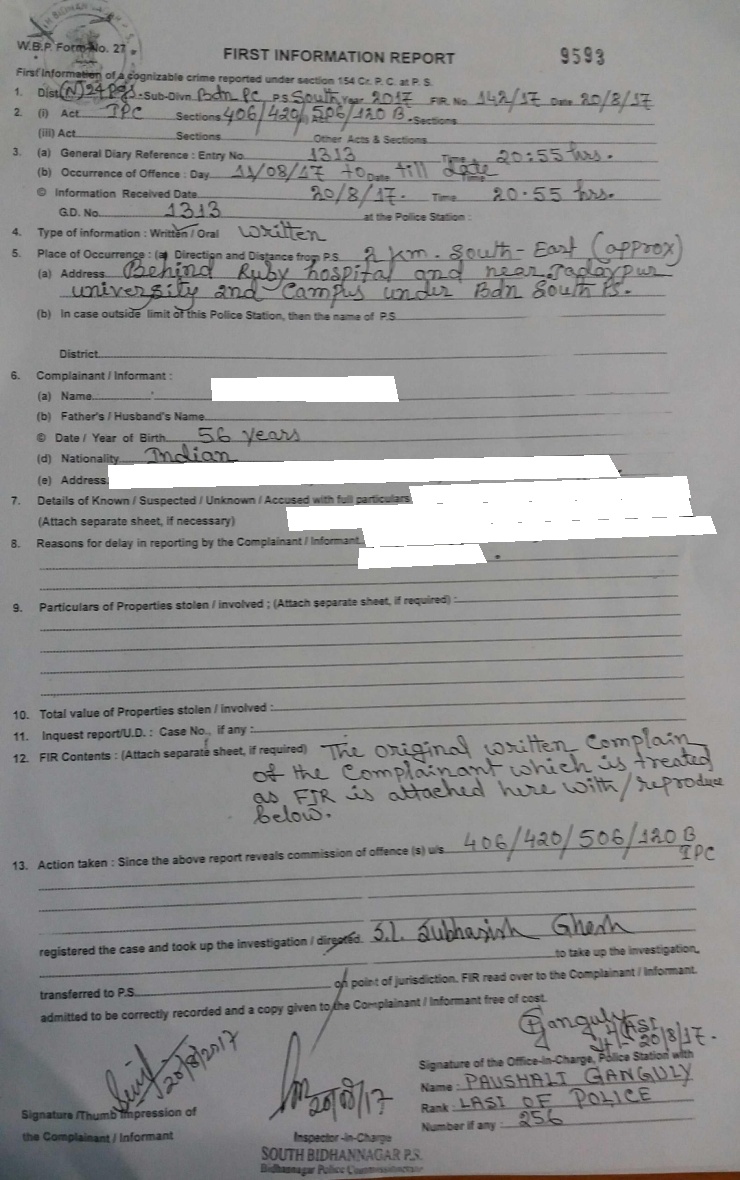 W.B.P. Form No. 27
FIRST INFORMATION REPORT 9593
First Information of a cognizable crime reported under section 154 Cr. P. C. at P. S.
1. Dist. (N) 24 Pgs. Sub-Divn. Bdn PC P.S. South Year 2017 FIR. No 142/17 Date 20/8/17
2. (i) Act IPC Sections 406/420/506/120 B. Sections
(iii) Act Sections Other Acts & Sections
3. (a) General Diary Reference : Entry No. 1313 Time 20:55 hrs.
(b) Occurrence of Offence : Day 11/08/17 to Date till date Time
© Information Received Date 20/8/17. Time 20.55 hrs.
G.D. No. 1313 at the Police Station :
4. Type of information : Written / Oral written
5. Place of Occurrence : (a) Direction and Distance from P.S. 2 km. South-East (approx)
(a) Address Behind Ruby hospital and near Jadavpur
university 2nd Campus under Bdn South PS.
(b) In case outside limit of this Police Station, then the name of P.S
District
6. Complainant / Informant :
(a) Name
(b) Father's / Husband's Name
© Date / Year of Birth 56 years
(d) Nationality Indian
(e) Address
7. Details of Known / Suspected / Unknown / Accused with full particulars
(Attach separate sheet, if necessary)
8. Reasons for delay in reporting by the Complainant / Informant
9. Particulars of Properties stolen / involved ; (Attach separate sheet, if required) :
10. Total value of Properties stolen / involved :
11. Inquest report/U.D. : Case No., if any :
12. FIR Contents : (Attach separate sheet, if required) The original written Complain
of the Complainant which is treated
as FIR is attached here with/reproduce
below.
13. Action taken : Since the above report reveals commission of offence (s) u/s. 406/420/506/120 B
IPC
registered the case and took up the investigation / directed. S.I. Subhasish Ghosh
to take up the investigation,
transferred to P.S. on point of jurisdiction. FIR read over to the Complainant / Informant.
admitted to be correctly recorded and a copy given to the Complainant / Informant free of cost.
Ganguly
20/8/2017 20/8/17.
Signature of the Office-in-Charge, Police Station with
Name : PAUSHALI GANGULY
20/08/17 Rank : LASI OF POLICE
Signature /Thumb Impression of Number if any : 256
the Complainant / Informant Inspector-in-Charge
SOUTH BIDHANNAGAR P.S.
Bidhannagar Police Commissionerate